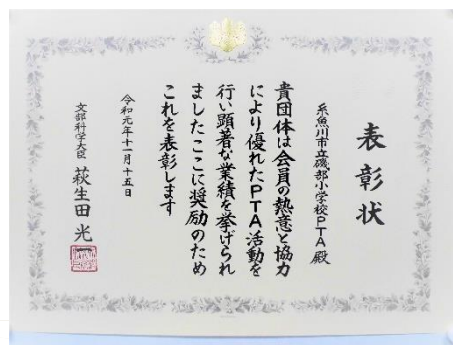 表彰状
糸魚川市立磯部小学校PTA殿
貴団体は会員の熱意と協力
により優れたPTA活動を
行い顕著な業績を挙げられ
ましたここに奨励のため
これを表彰します
令和元年十一月十五日
文部科学大臣 萩生田光一